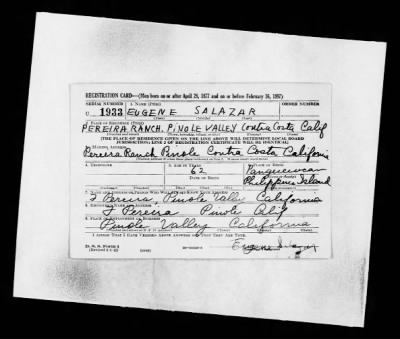 REGISTRATION CARD—(Men born on or after April 28, 1877 and on or before February 16, 1897)
SERIAL NUMBER 1. NAME (Print) ORDER NUMBER
U 1933 EUGENE SALAZAR
2. PLACE OF RESIDENCE (Print)
PEREIRA RANCH, PINOLE VALLEY Contra Costa Calif
[THE PLACE OF RESIDENCE GIVEN ON THE LINE ABOVE WILL DETERMINE LOCAL BOARD
JURISDICTION; LINE 2 OF REGISTRATION CERTIFICATE WILL BE IDENTICAL]
3. MAILING ADDRESS
Pereira Ranch Pinole Contra Costa California
4. TELEPHONE 5. AGE IN YEARS 6. PLACE OF BIRTH
62
DATE OF BIRTH
Philippine Island
7. NAME AND ADDRESS OF PERSON WHO WILL ALWAYS KNOW YOUR ADDRESS
J Pereira, Pinole Valley California
8. EMPLOYER'S NAME AND ADDRESS
J Pereira Pinole Calif
9. PLACE OF EMPLOYMENT OR BUSINESS
Pinole Valley California
I AFFIRM THAT I HAVE VERIFIED ABOVE ANSWERS AND THAT THEY ARE TRUE.
D. S. S. FORM 1
Eugene Salazar